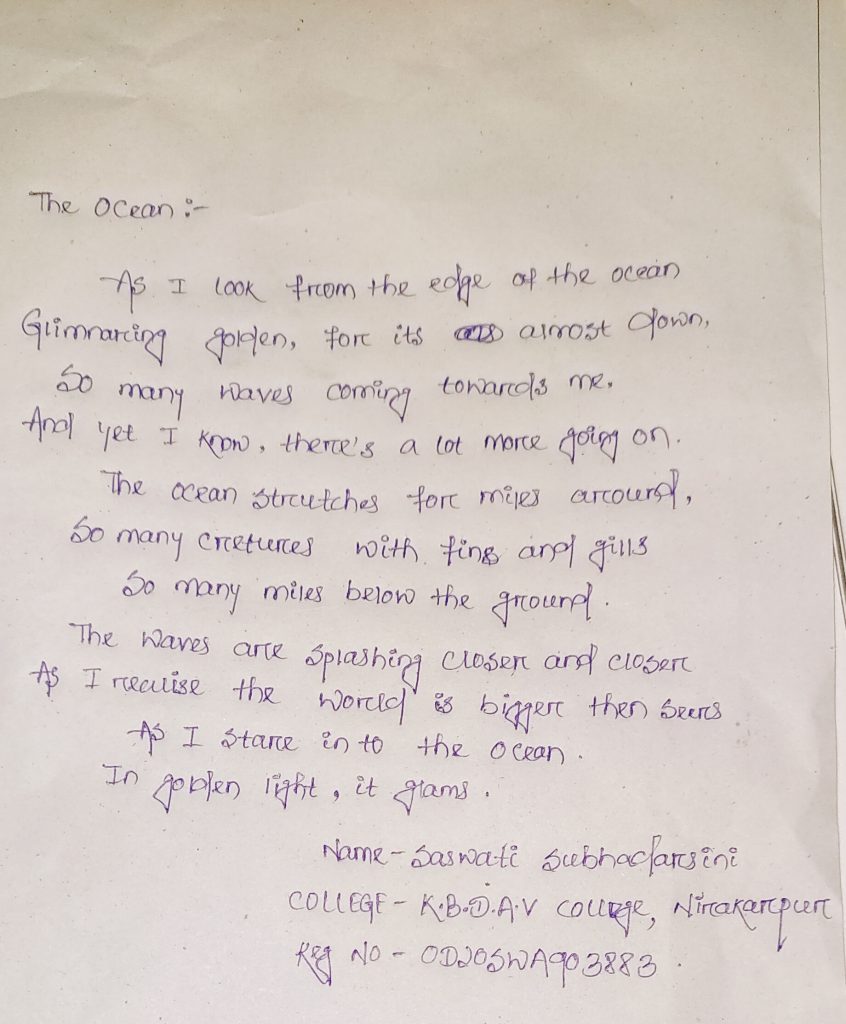 The Ocean :-
As I look from the edge of the ocean
Glimmaring golden, for its almost down,
So many waves coming towards me.
And yet I know, there's a lot more going on.
The ocean strutches for miles around,
So many cretures with fins and gills
So many miles below the ground.
The waves are splashing closer and closer
As I realise the world is bigger then seers
As I stare in to the ocean.
In golden light, it glams.
Name - Saswati Subhadarsini
COLLEGE - K.B.D.A.V college, Nirakarpur
Reg NO - OD20SWA903883.